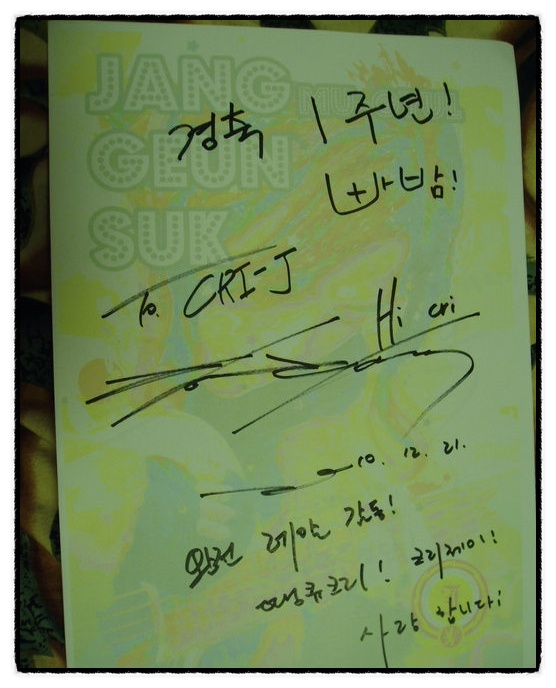 JANG
GEUN
SUK
경축 1주년!
빠밤!
To. CRI-J
Hi cri
10. 12. 21.
완전 레알 감동!
땡큐크리! 크리제이!
사랑합니다!